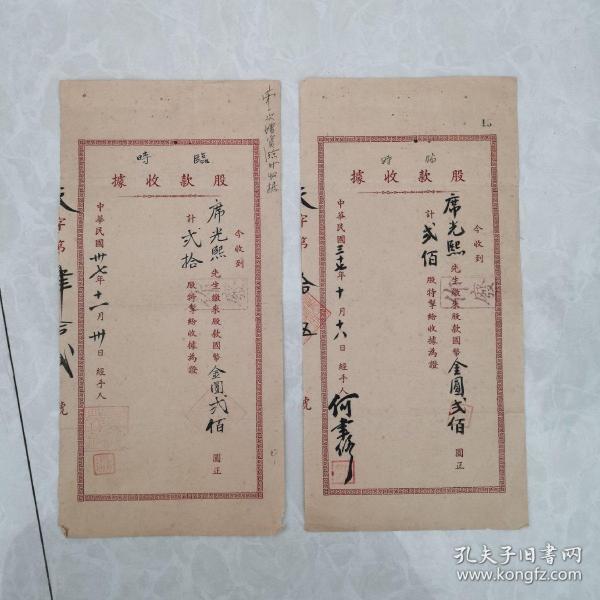 臨時
股款收據
今收到
席光熙先生繳來股款國幣金圓弍佰圓正
計弍佰股將掣給收據為證
中華民國三十七年十月十六日經手人
廢
臨時
股款收據
今收到
席光熙先生繳來股款國幣金圓弍佰圓正
計弍拾股將掣給收據為證
中華民國卅七年十一月卅日經手人
字第
號
廢
孔夫子旧书网
www.kongfz.com